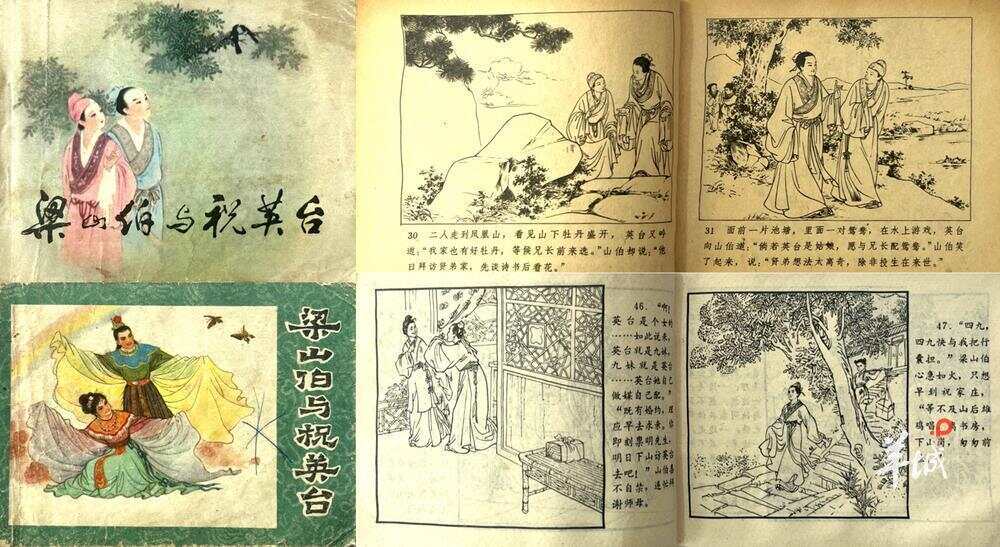 梁山伯与祝英台
30 二人走到凤凰山，看见山下牡丹盛开，英台又吟
道：“我家也有好牡丹，等候兄长前来选。”山伯却说：“他
日拜访贤弟家，先谈诗书后看花。”
31 面前一片池塘，里面一对鸳鸯，在水上游戏，英台
向山伯道：“倘若英台是姑娘，愿与兄长配鸳鸯。”山伯笑
了起来，说：“贤弟想法太离奇，除非投生在来世。”
梁山伯与祝英台
46. “啊！
英台是个女的
……如此说来，
英台就是九妹，
九妹就是英台
……英台她自己
做媒自己配。”
“既有婚约，理
应早去求亲。你
即刻禀明先生，
明日下山访英台
去吧！”山伯喜
不自禁，连忙拜
谢师母。
47. “四九，
四九快与我把行
囊担。”梁山伯
心急如火，只想
早到祝家庄，
“等不及山后雄
鸡唱 书房，
下山岗，匆匆前
羊城